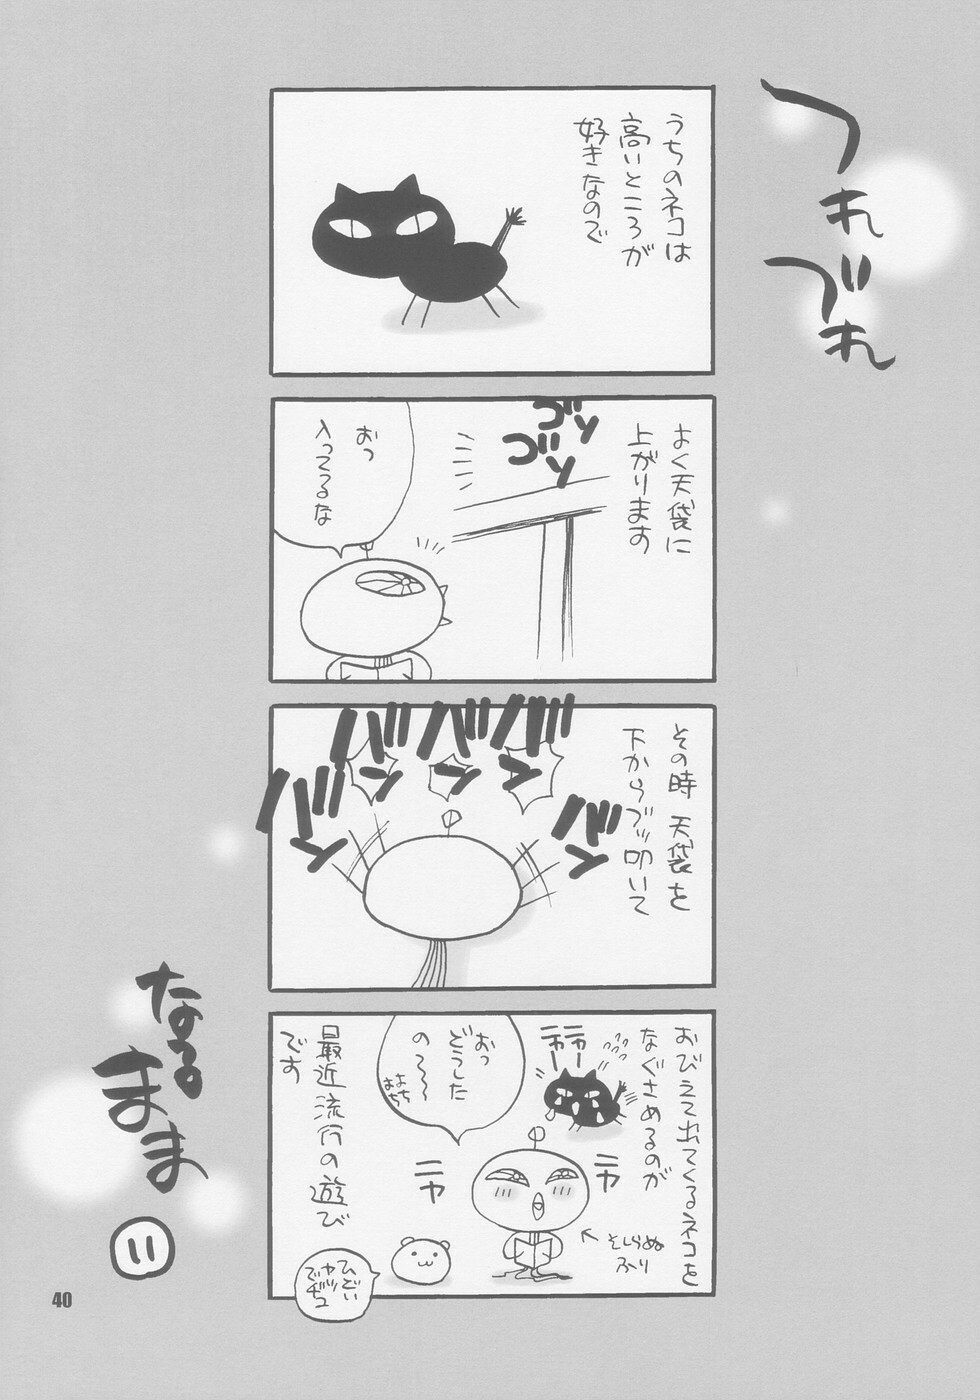 つれ
づれ
うちのネコは
高いところが
好きなので
よく天袋に
上がります
ゴソ
ゴソ
おっ
入ってるな
その時 天袋を
下からブッ叩いて
バン
バン
バン
バン
バン
おびえて出てくるネコを
なぐさめるのが
最近流行の遊び
です
ニャー
ニャー
おっ
どうした
の～～
よちよち
ニヤ
ニヤ
そしらぬ
ふり
ひどい
ヤツ
でヂュ
なる
まま
11
40